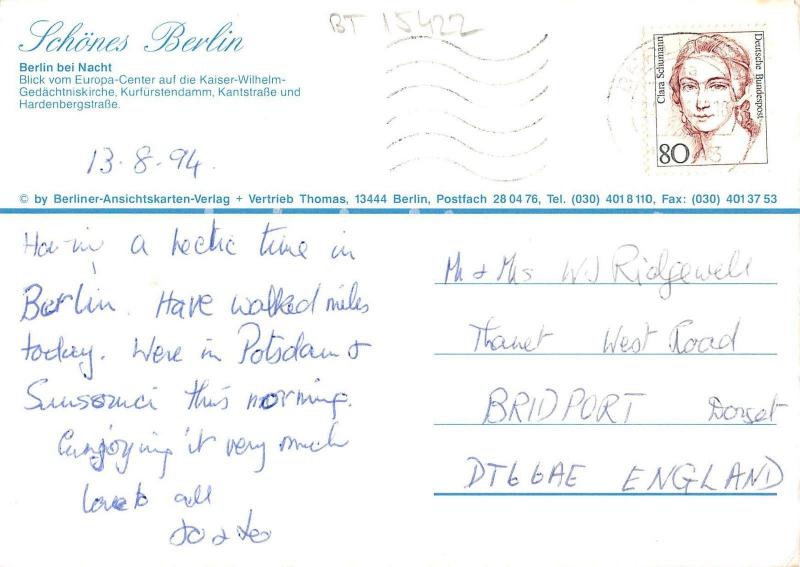 BT 15422
Schönes Berlin
Berlin bei Nacht
Blick vom Europa-Center auf die Kaiser-Wilhelm-
Gedächtniskirche, Kurfürstendamm, Kantstraße und
Hardenbergstraße.
13.8.94.
Clara Schumann
Deutsche Bundespost
80
© by Berliner-Ansichtskarten-Verlag + Vertrieb Thomas, 13444 Berlin, Postfach 28 04 76, Tel. (030) 401 8 110, Fax: (030) 401 37 53
Having a hectic time in
Berlin. Have walked miles
today. Were in Potsdam &
Sunsouci this morning.
Enjoying it very much
Love to all
Mr & Mrs W J Ridgewell
Thanet West Road
BRIDPORT Dorset
DT6 6AE ENGLAND